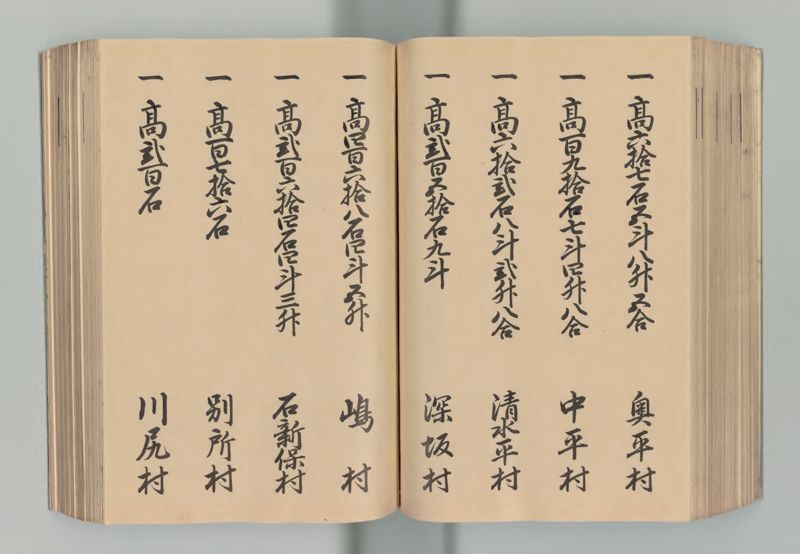 一 高六拾七石五斗八升五合 奥平村
一 高百九拾石七斗四升八合 中平村
一 高六拾弐石八斗弐升八合 清水平村
一 高弐百五拾石九斗 深坂村
一 高四百六拾八石四斗五升 嶋村
一 高弐百六拾四石四斗三升 石新保村
一 高百七拾六石 別所村
一 高弐百石 川尻村